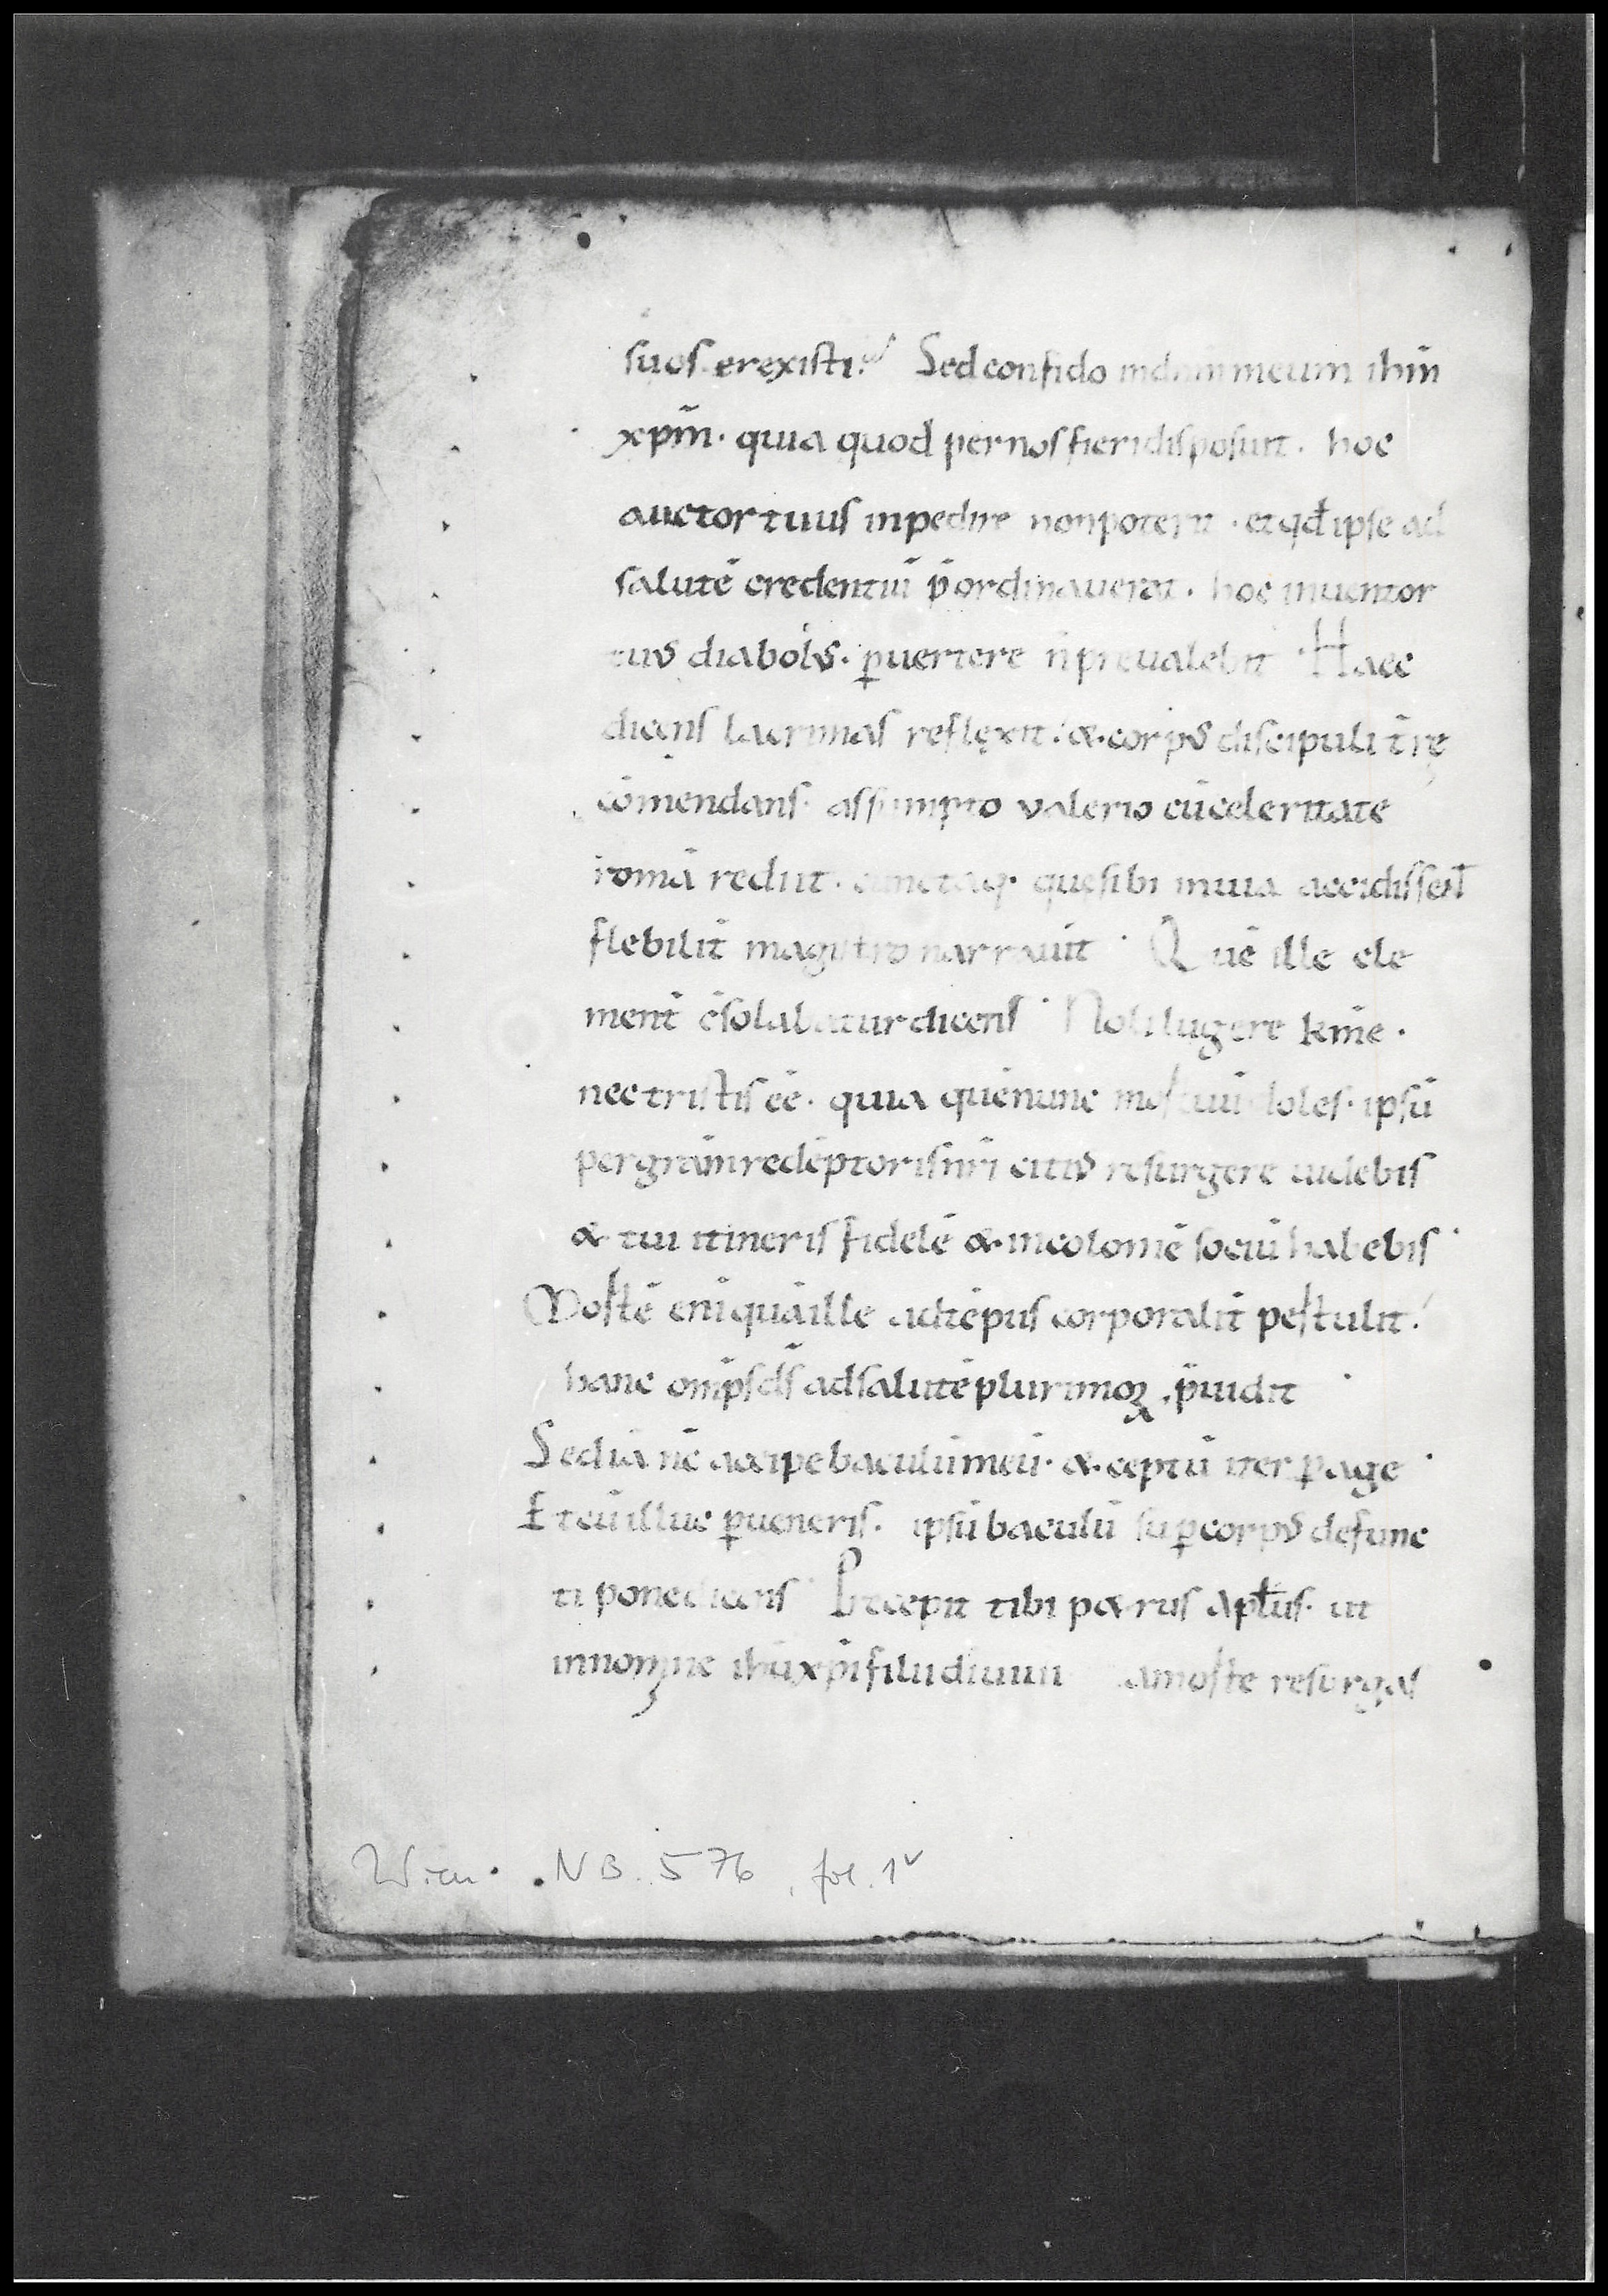 suos erexisti? Sed confido in dnm meum ihm
xpm · quia quod per nos fieri disposuit · hoc
auctor tuus inpedire non poterit · et qd ipse ad
salutē credentiū p̄ordinauerat · hoc inuentor
tuꝰ diabolꝰ · ꝑuertere n̄ preualebit · Haec
dicens lacrimas reflexit · & corpꝰ discipuli t̄rę
cōmendans · assumpto valerio cū celeritate
romā rediit · cunctaq· quę sibi in uia accidissent
flebilit̄ magistro narrauit · Quē ille cle
ment̄ c̄solabatur dicens · Noli lugere km̄e ·
nec tristis ēē · quia quē nunc doles · ipsū
per grām redēptoris nr̄i citiꝰ resurgere uidebis
& tui itineris fidelē & incolomē sociū habebis ·
Mostē eni quā ille ad tēpus corporalit̄ pestulit ·
hanc om̄ps ds̄ ad salutē plurimoꝝ p̄uidit ·
Sed iā nc̄ accipe baculū meū · & ceptū iter ꝑage ·
Et cū illuc ꝑueneris · ipsū baculū suꝑ corpꝰ defunc
ti pone dicens · Precepit tibi p&rus aplus · ut
in nomine ihū xpi filii di uiui a moste resurgas
Wien · NB. 576, fol. 1v